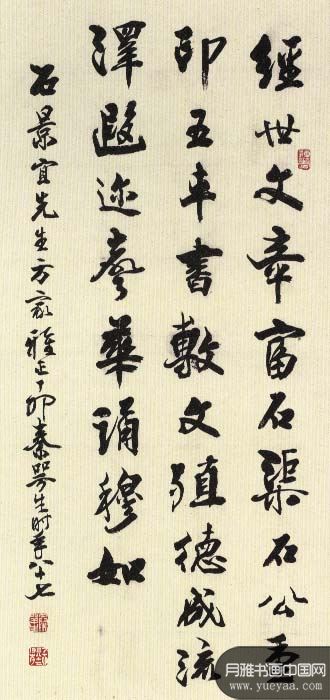 經世文章富石渠石公孟
印五車書敷文殖德成流
澤遐迩聲華誦穆如
石景宜先生方家雅正丁卯秦咢生时年八十七
月雅书画中国网
www.yueyaa.com